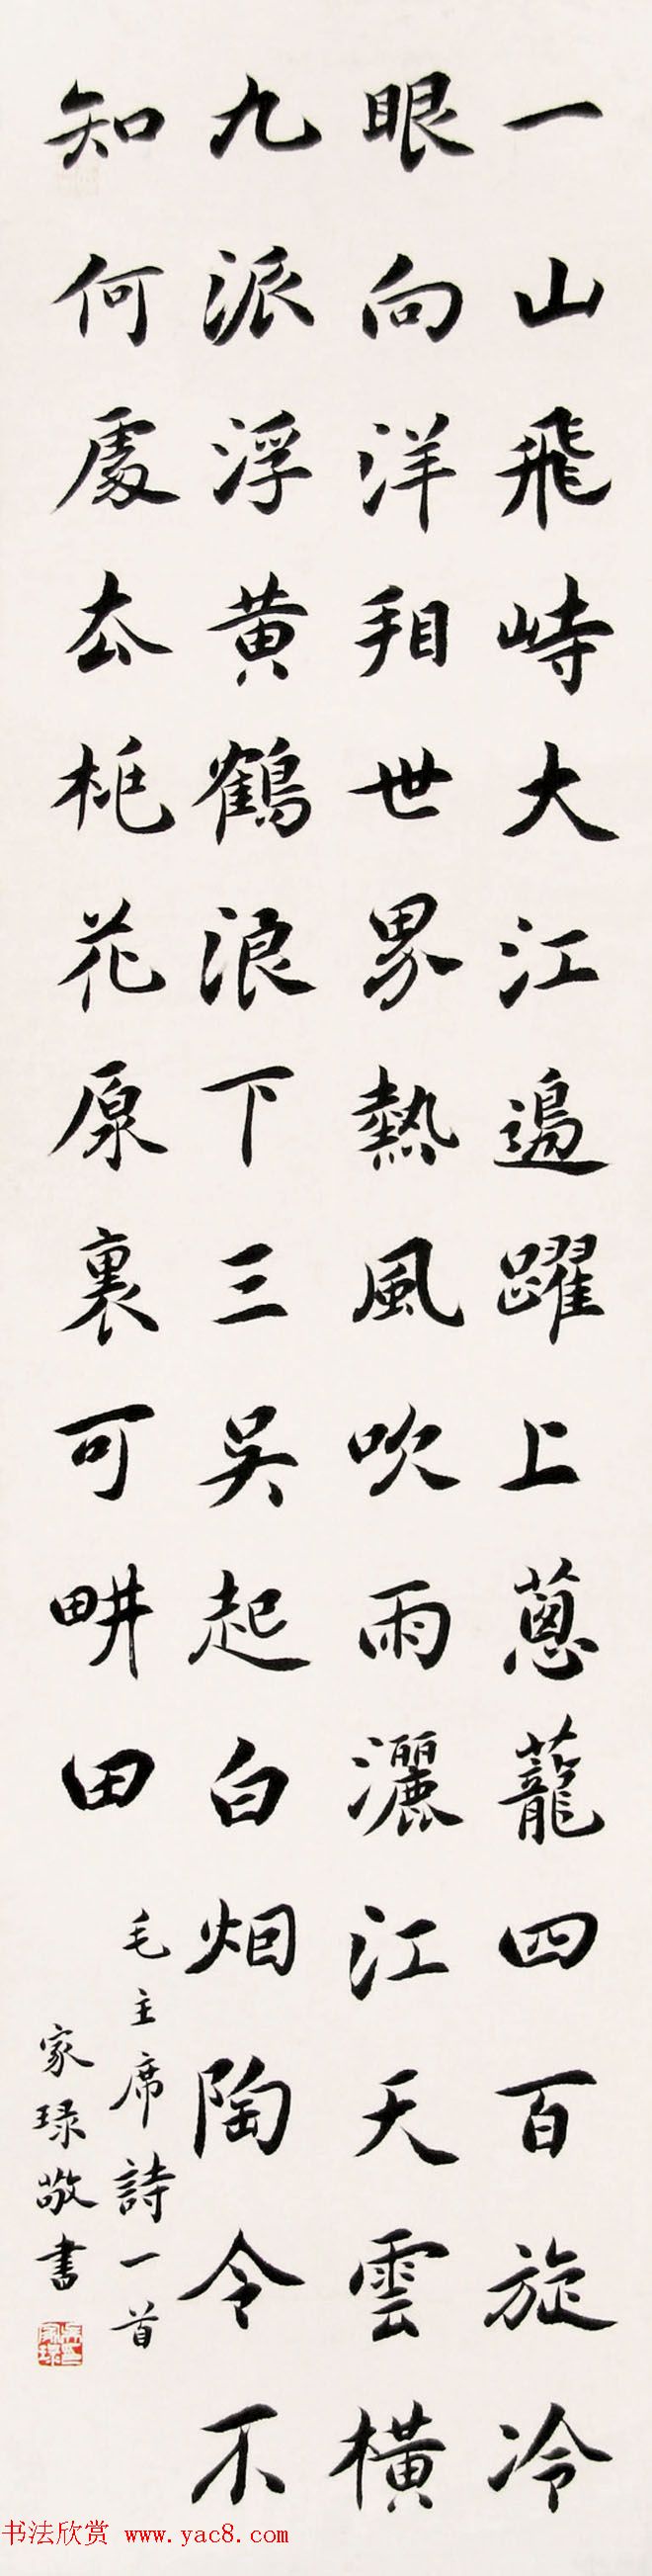 一山飛峙大江邊躍上蔥蘢四百旋冷
眼向洋看世界熱風吹雨灑江天雲橫
九派浮黃鶴浪下三吳起白烟陶令不
知何處去桃花原裏可畊田
毛主席詩一首
家琭敬書
书法欣赏 www.yac8.com